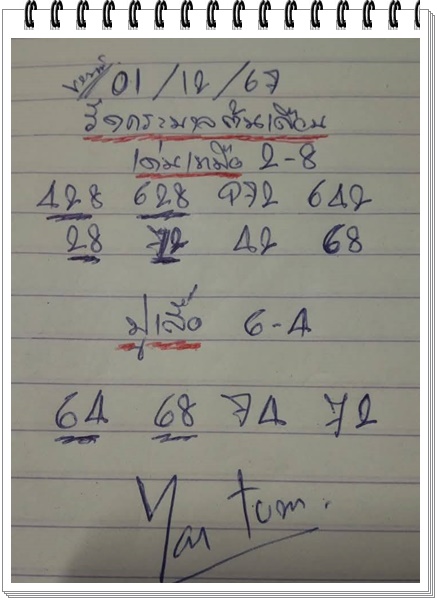 01/12/67
รีดกระมลต้นเดือน
เด่นเหนือ 2-8
428 628 972 642
28 72 42 68
ปูเสื่อ 6-4
64 68 74 72
Yai Tom.